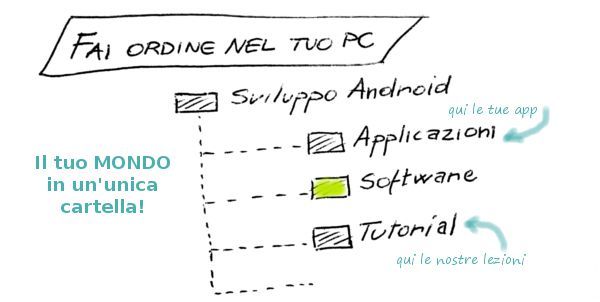 FAI ORDINE NEL TUO PC
Sviluppo Android
qui le tue app
Applicazioni
Il tuo MONDO
in un'unica
cartella!
Software
Tutorial
qui le nostre lezioni